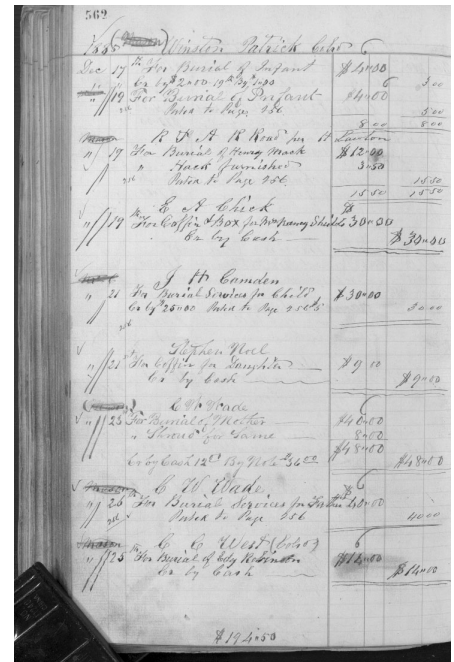 562
1885 Winston Patrick Cold 6
Dec 17 th For Burial of Infant $4"00
Cr by $2"00 19th By $1"00 6 3 00
" 19 For Burial of Infant $4"00
Posted to Page 256 5 00
8 00 8 00
R & A R Road per
" 19 For Burial of Henry Mack $12"00
" Hack furnished 3"50
Posted to Page 256 15 50
15 50 15 50
E A Chick $
" 19 th For Coffin & Box for 30"00
Cr by Cash $30"00
J H Camden
" 21 For Burial Services for Child $30"00
Cr by $25"00 Posted to Page 256 $5
30 00
Stephen Noel
" 21 st For Coffin for Daughter $9 00
Cr by Cash $9"00
C W Wade 6
" 25 For Burial of Mother $40"00
" Shroud for Same 8"00
$48"00
Cr by Cash 12 00 By Note $36 00 $48"00
C W Wade 6
" 26 th For Burial Services for $40"00
Posted to Page 256 40 00
C G West (Cold) 6
" 25 th For Burial of Edy Robinson $14"00
Cr by Cash $14"00
$194"50